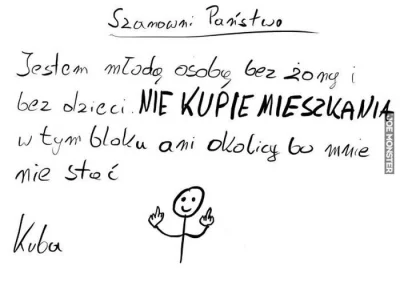 Szanowni Państwo
Jestem młodą osobą bez żony i
bez dzieci. NIE KUPIE MIESZKANIA
w tym bloku ani okolicy bo mnie
nie stać
Kuba
JOE MONSTER